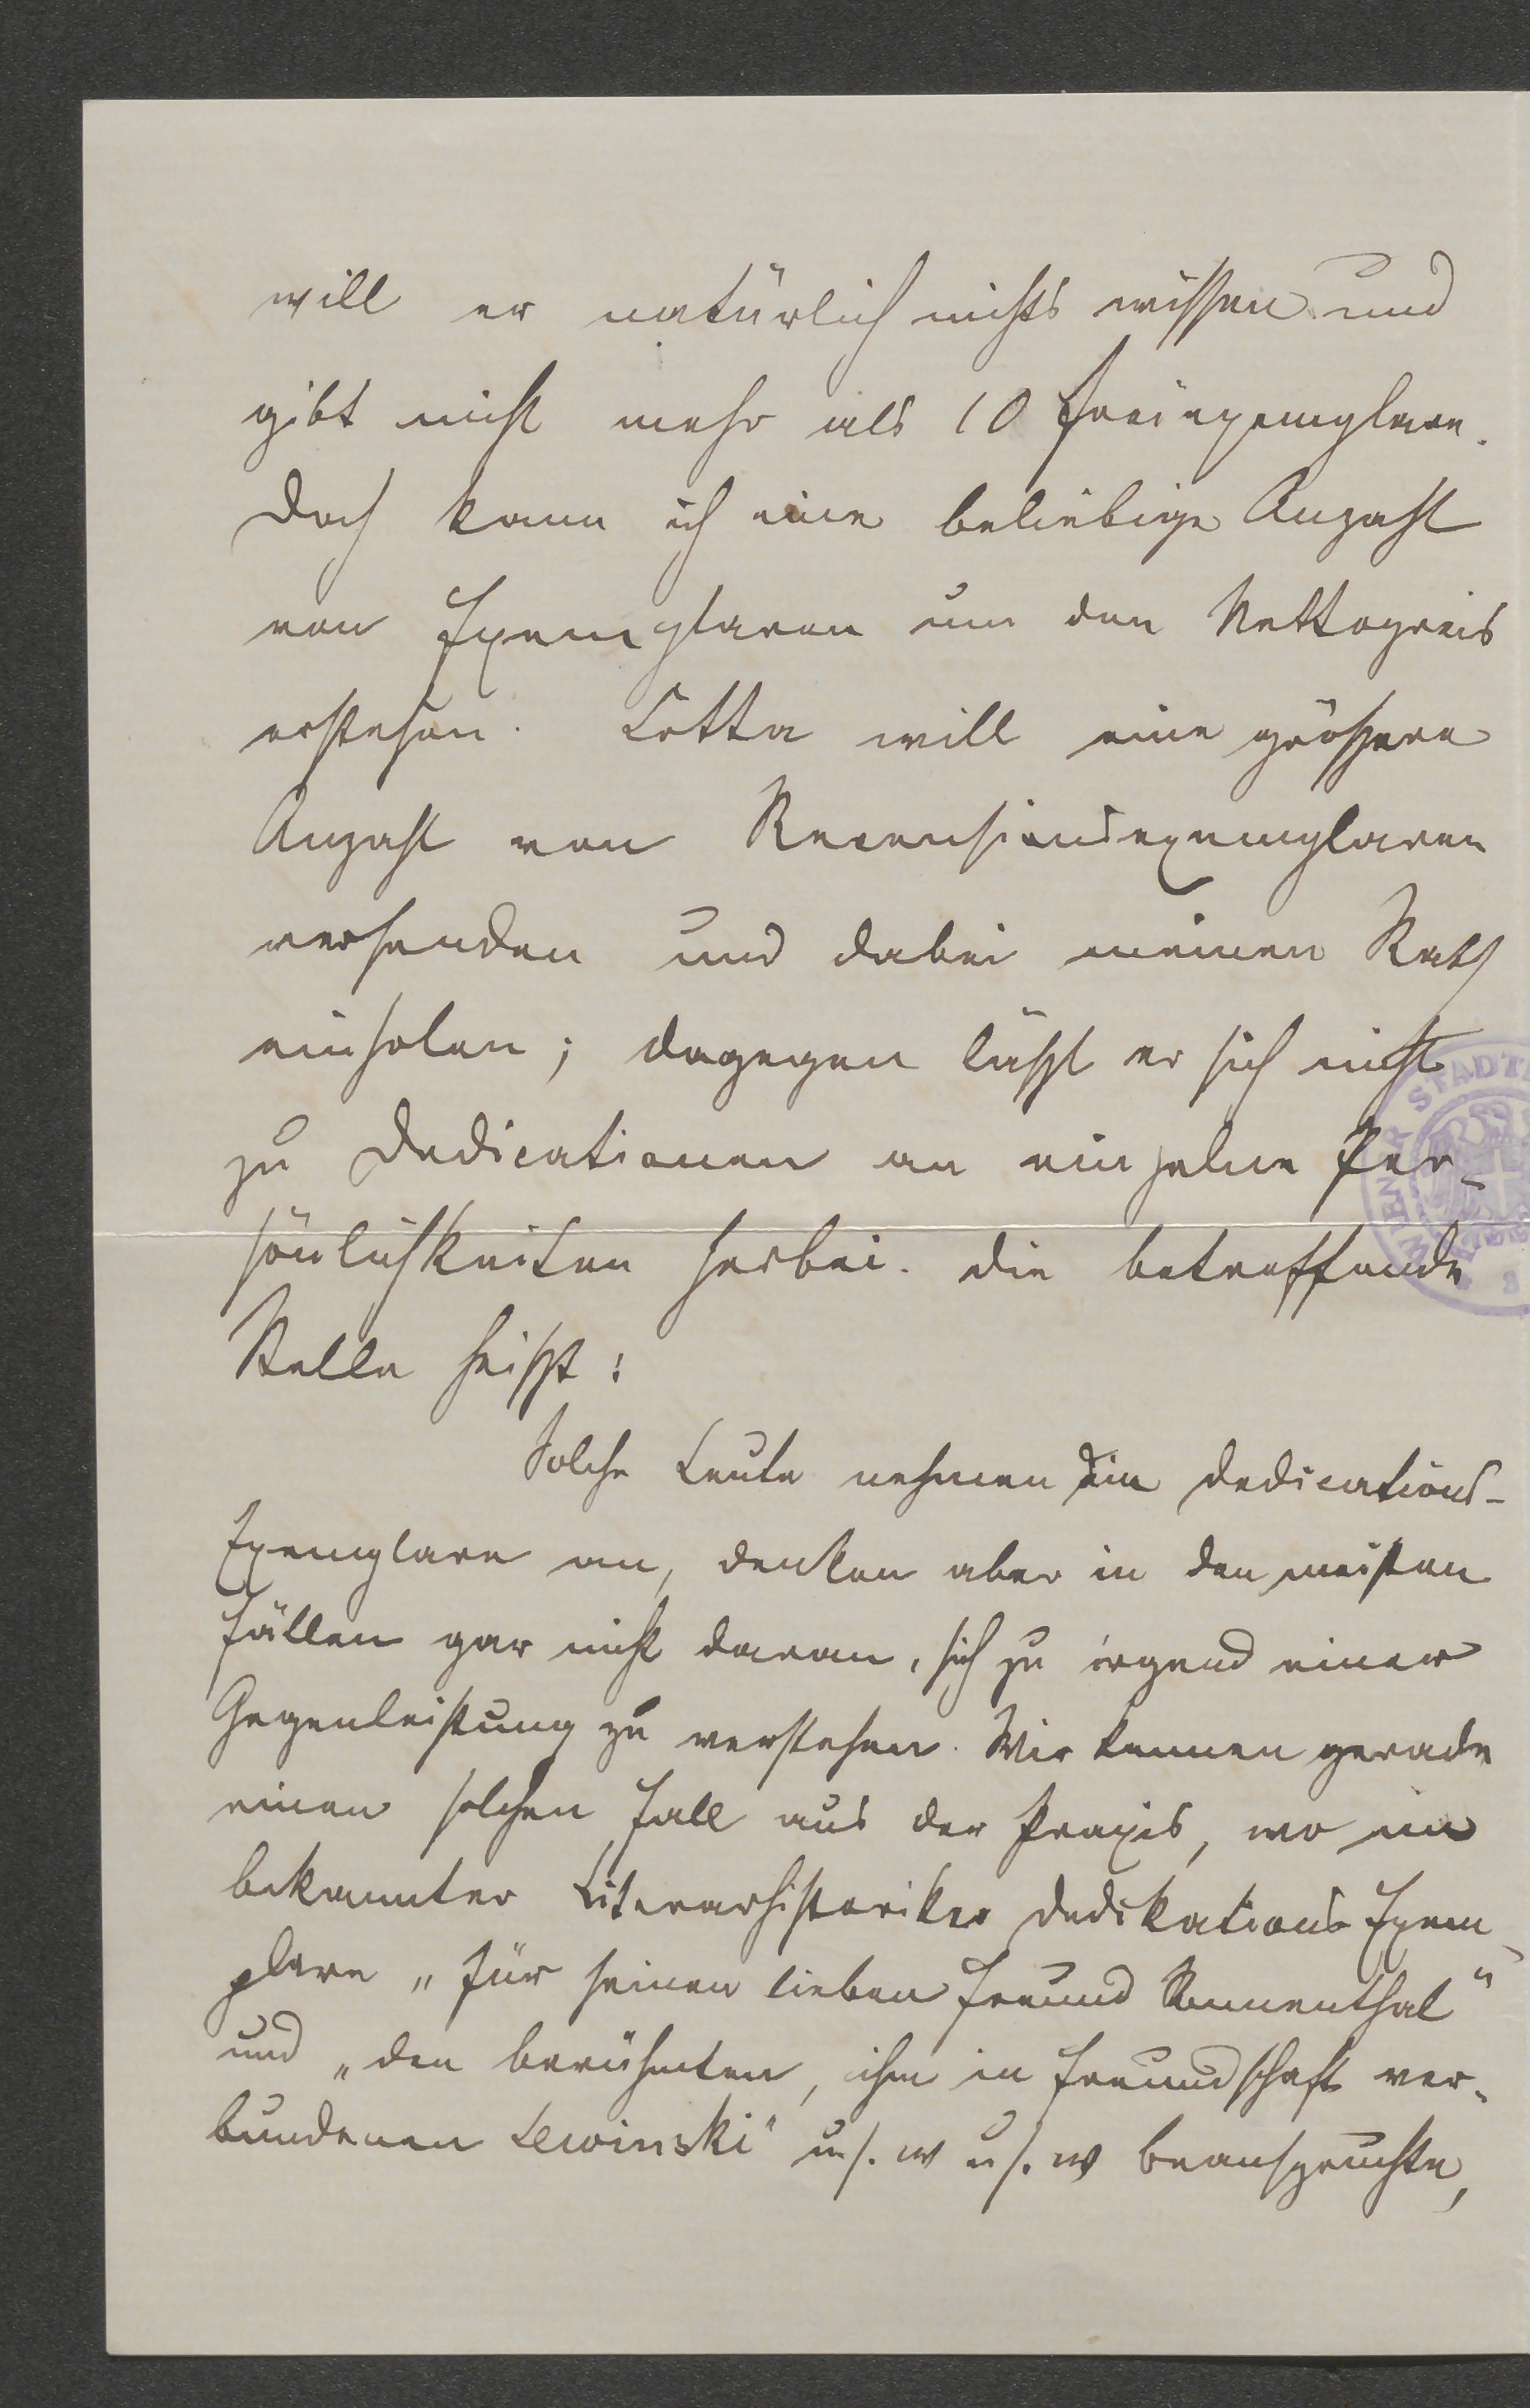 will er natürlich nichts wissen und
gibt nicht mehr als 10 Freiexemplare.
Doch kann ich eine beliebige Anzahl
von Exemplaren um den Nettopreis
erstehen. Cotta will eine größere
Anzahl von Recensionsexemplaren
versenden und dabei meinen Rath
einholen; dagegen läßt er sich nicht
zu Dedicationen an einzelne Per-
sönlichkeiten herbei. Die betreffende
Stelle heißt:
Solche Leute nehmen die Dedications-
Exemplare an, denken aber in den meisten
Fällen gar nicht daran, sich zu irgend einer
Gegenleistung zu verstehen. Wir kennen gerade
einen solchen Fall aus der Praxis, wo ein
bekannter Literarhistoriker Dedikations-Exem-
plare „für seinen lieben Freund Sonnenthal"
und „den berühmten, ihm in Freundschaft ver-
bundenen Lewinski" u. s. w u s. w beanspruchte,
WIENER STADT